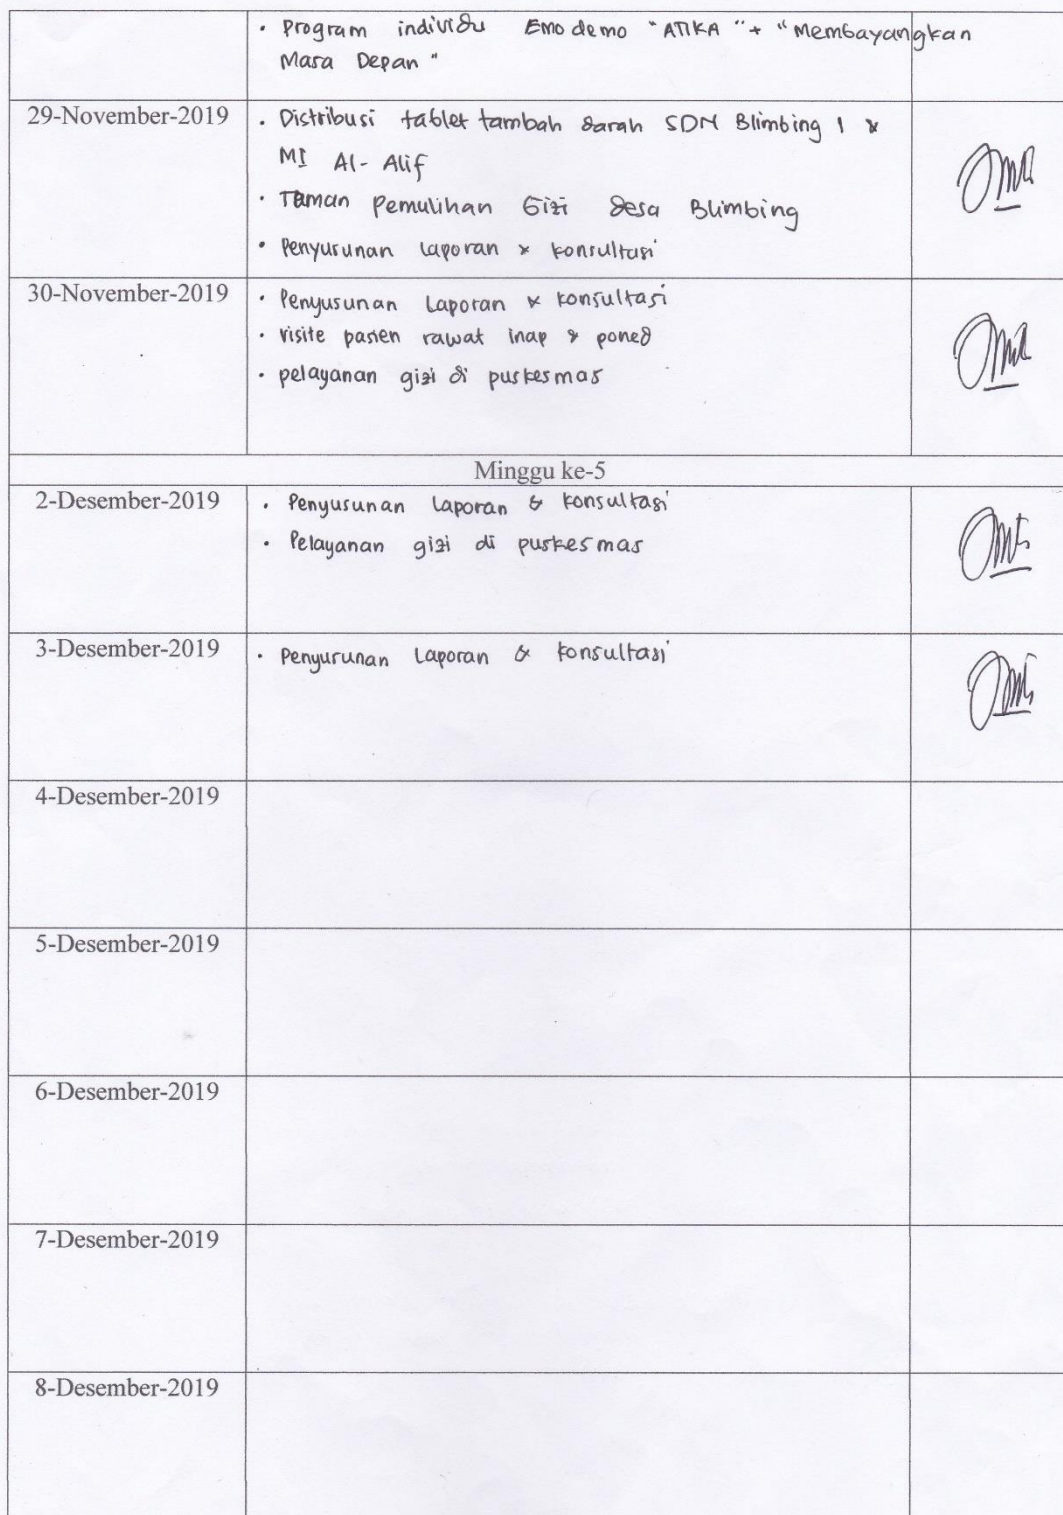 • Program individu Emo demo "ATIKA" + "Membayangkan
Masa Depan"
29-November-2019
• Distribusi tablet tambah darah SDN Blimbing 1 &
MI Al-Alif
• Taman Pemulihan Gizi Desa Blimbing
• Penyusunan laporan & konsultasi
30-November-2019
• Penyusunan Laporan & konsultasi
• visite pasien rawat inap & poned
• pelayanan gizi di puskesmas
Minggu ke-5
2-Desember-2019
• Penyusunan Laporan & konsultasi
• Pelayanan gizi di puskesmas
3-Desember-2019
• Penyusunan Laporan & konsultasi
4-Desember-2019
5-Desember-2019
6-Desember-2019
7-Desember-2019
8-Desember-2019